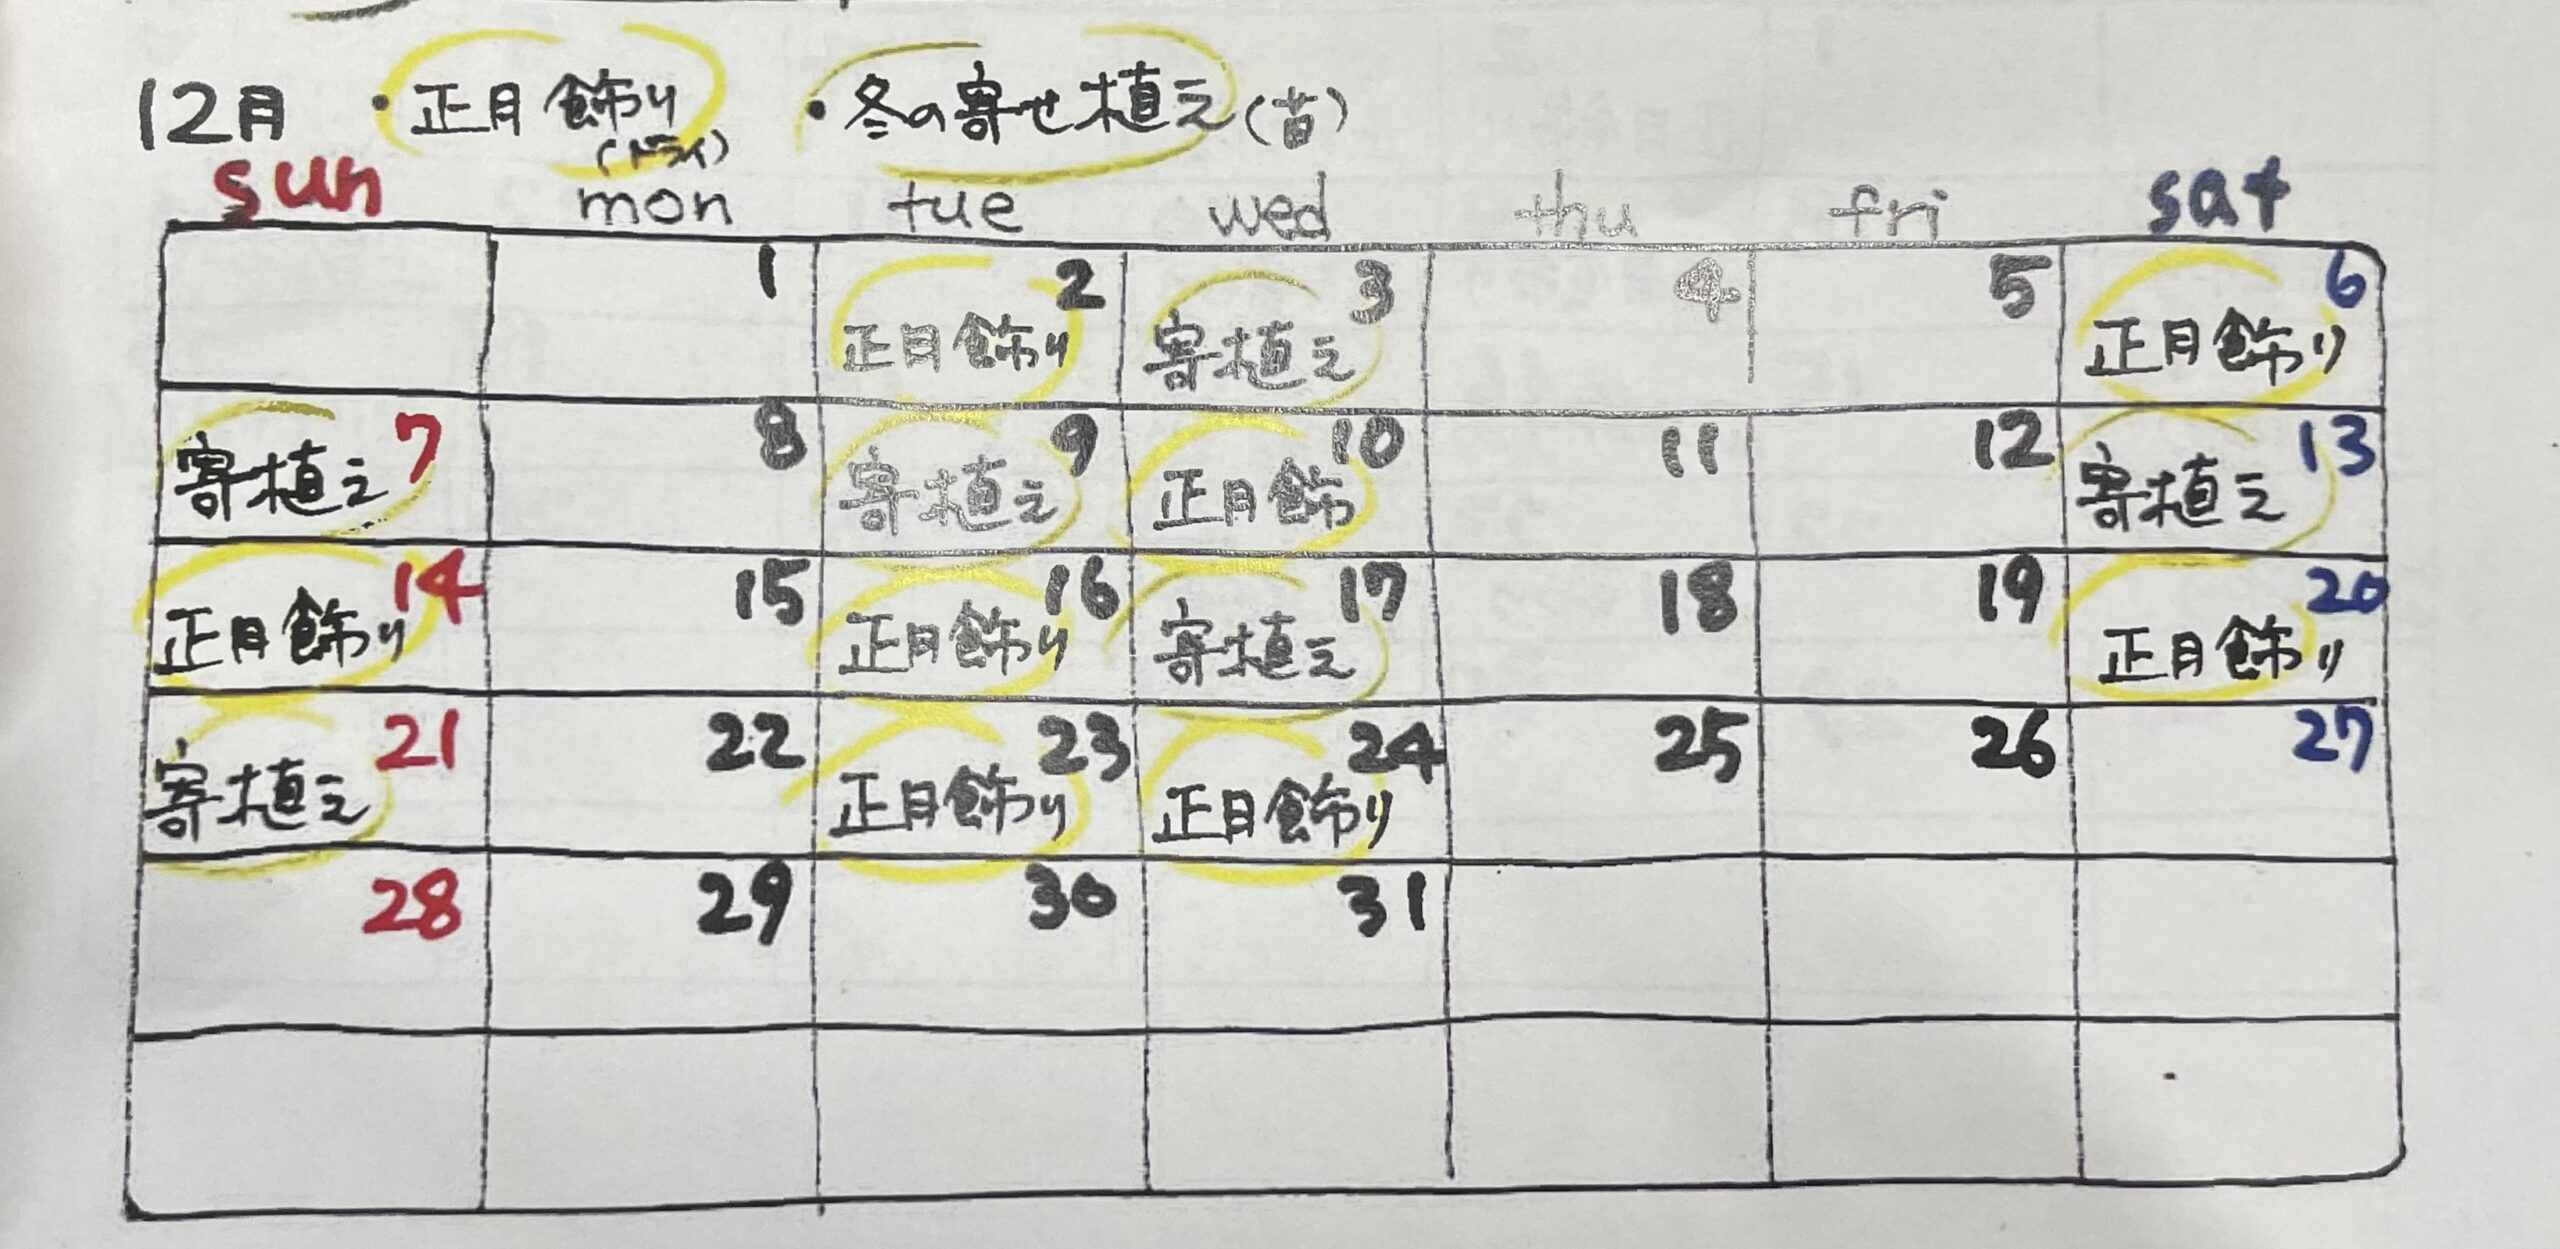 12月 ・正月飾り ・冬の寄せ植え(苗)
(ドライ)
sun mon tue wed thu fri sat
1 2 3 4 5 6
正月飾り 寄植え 正月飾り
7 8 9 10 11 12 13
寄植え 寄植え 正月飾 寄植え
14 15 16 17 18 19 20
正月飾り 正月飾り 寄植え 正月飾り
21 22 23 24 25 26 27
寄植え 正月飾り 正月飾り
28 29 30 31